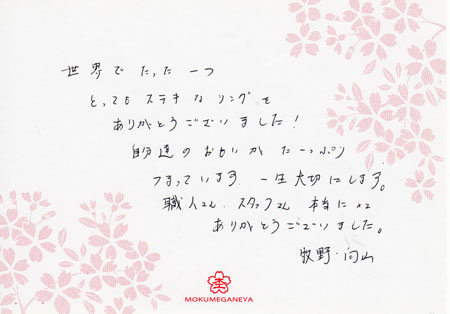 世界でたった一つ
とってもステキなリングを
ありがとうございました！
自分達のおもいがたーっぷり
つまっています。一生大切にします。
職人さん、スタッフさん 本当に
ありがとうございました。
牧野・向山
MOKUMEGANEYA